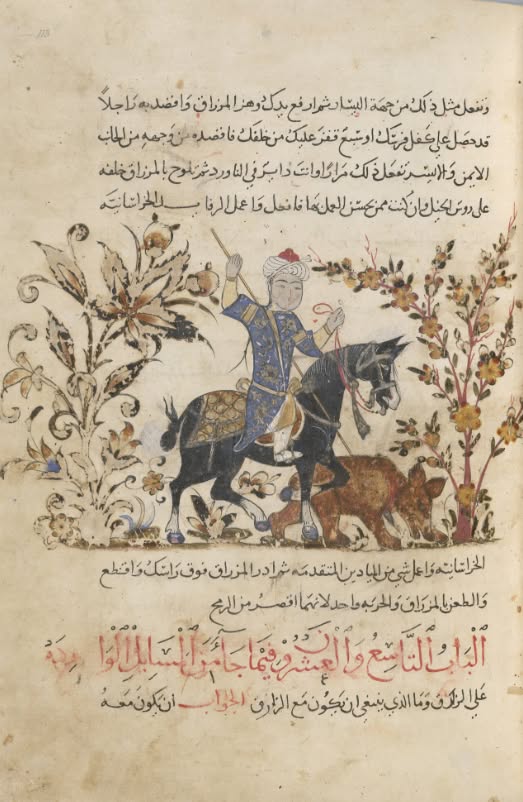 وتفعل مثل ذلك من جهة اليسار ثم ارفع يدك وهز المزراق واقصد به راجلاً
قد حصل علي كفل فرسك او سبع قفز عليك من خلفك فاقصده من وجهه من الجانب
الايمن والايسر تفعل ذلك مرارا وانت داير في الناورد ثم تلوح بالمزراق خلفه
علي روس الخيل وان كنت ممن يحسن العمل بها فافعل واعمل الخراسانيه
الخراسانيه واعمل شي من الميادين المتقدمه ثم ادر المزراق فوق راسك واقطع
والطعن بالمزراق والحربه واحد لانهما اقصر من الرمح
الباب التاسع والعشرون فيما جا من المسايل الوارده
علي الزراق وما الذي ينبغي ان يكون مع الزارق الجواب ان يكون معه